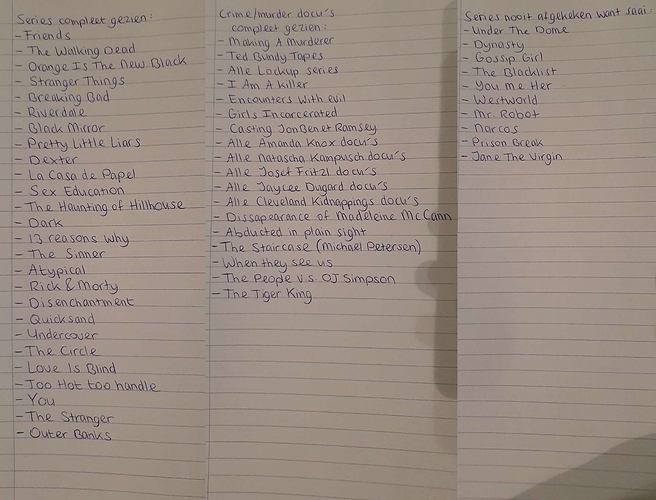 Series compleet gezien:
- Friends
- The Walking Dead
- Orange Is The New Black
- Stranger Things
- Breaking Bad
- Riverdale
- Black Mirror
- Pretty Little Liars
- Dexter
- La Casa de Papel
- Sex Education
- The Haunting of Hillhouse
- Dark
- 13 reasons why
- The Sinner
- Atypical
- Rick & Morty
- Disenchantment
- Quicksand
- Undercover
- The Circle
- Love Is Blind
- Too Hot too handle
- You
- The Stranger
- Outer Banks
Crime/murder docu's
compleet gezien:
- Making A Murderer
- Ted Bundy Tapes
- Alle Lockup series
- I Am A Killer
- Encounters With evil
- Girls Incarcerated
- Casting JonBenet Ramsey
- Alle Amanda Knox docu's
- Alle Natascha Kampusch docu's
- Alle Josef Fritzl docu's
- Alle Jaycee Dugard docu's
- Alle Cleveland Kidnappings docu's
- Dissapearance of Madeleine McCann
- Abducted in plain sight
- The Staircase (Michael Petersen)
- When they see us
- The People v.s. OJ Simpson
- The Tiger King
Series nooit afgekeken want saai:
- Under The Dome
- Dynasty
- Gossip Girl
- The Blacklist
- You me Her
- Westworld
- Mr. Robot
- Narcos
- Prison Break
- Jane The Virgin